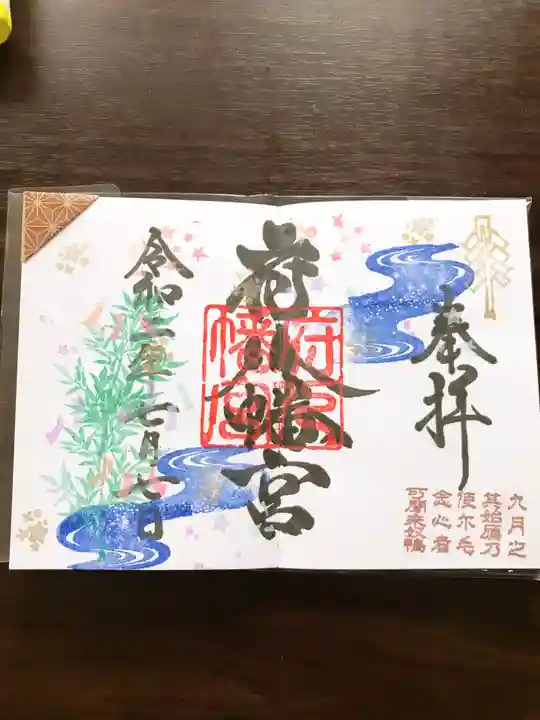 奉拝
九月之
其始鴈乃
使尓毛
念心者
可聞来奴鴨
府八幡宮
府八
幡宮
令和二年七月七日